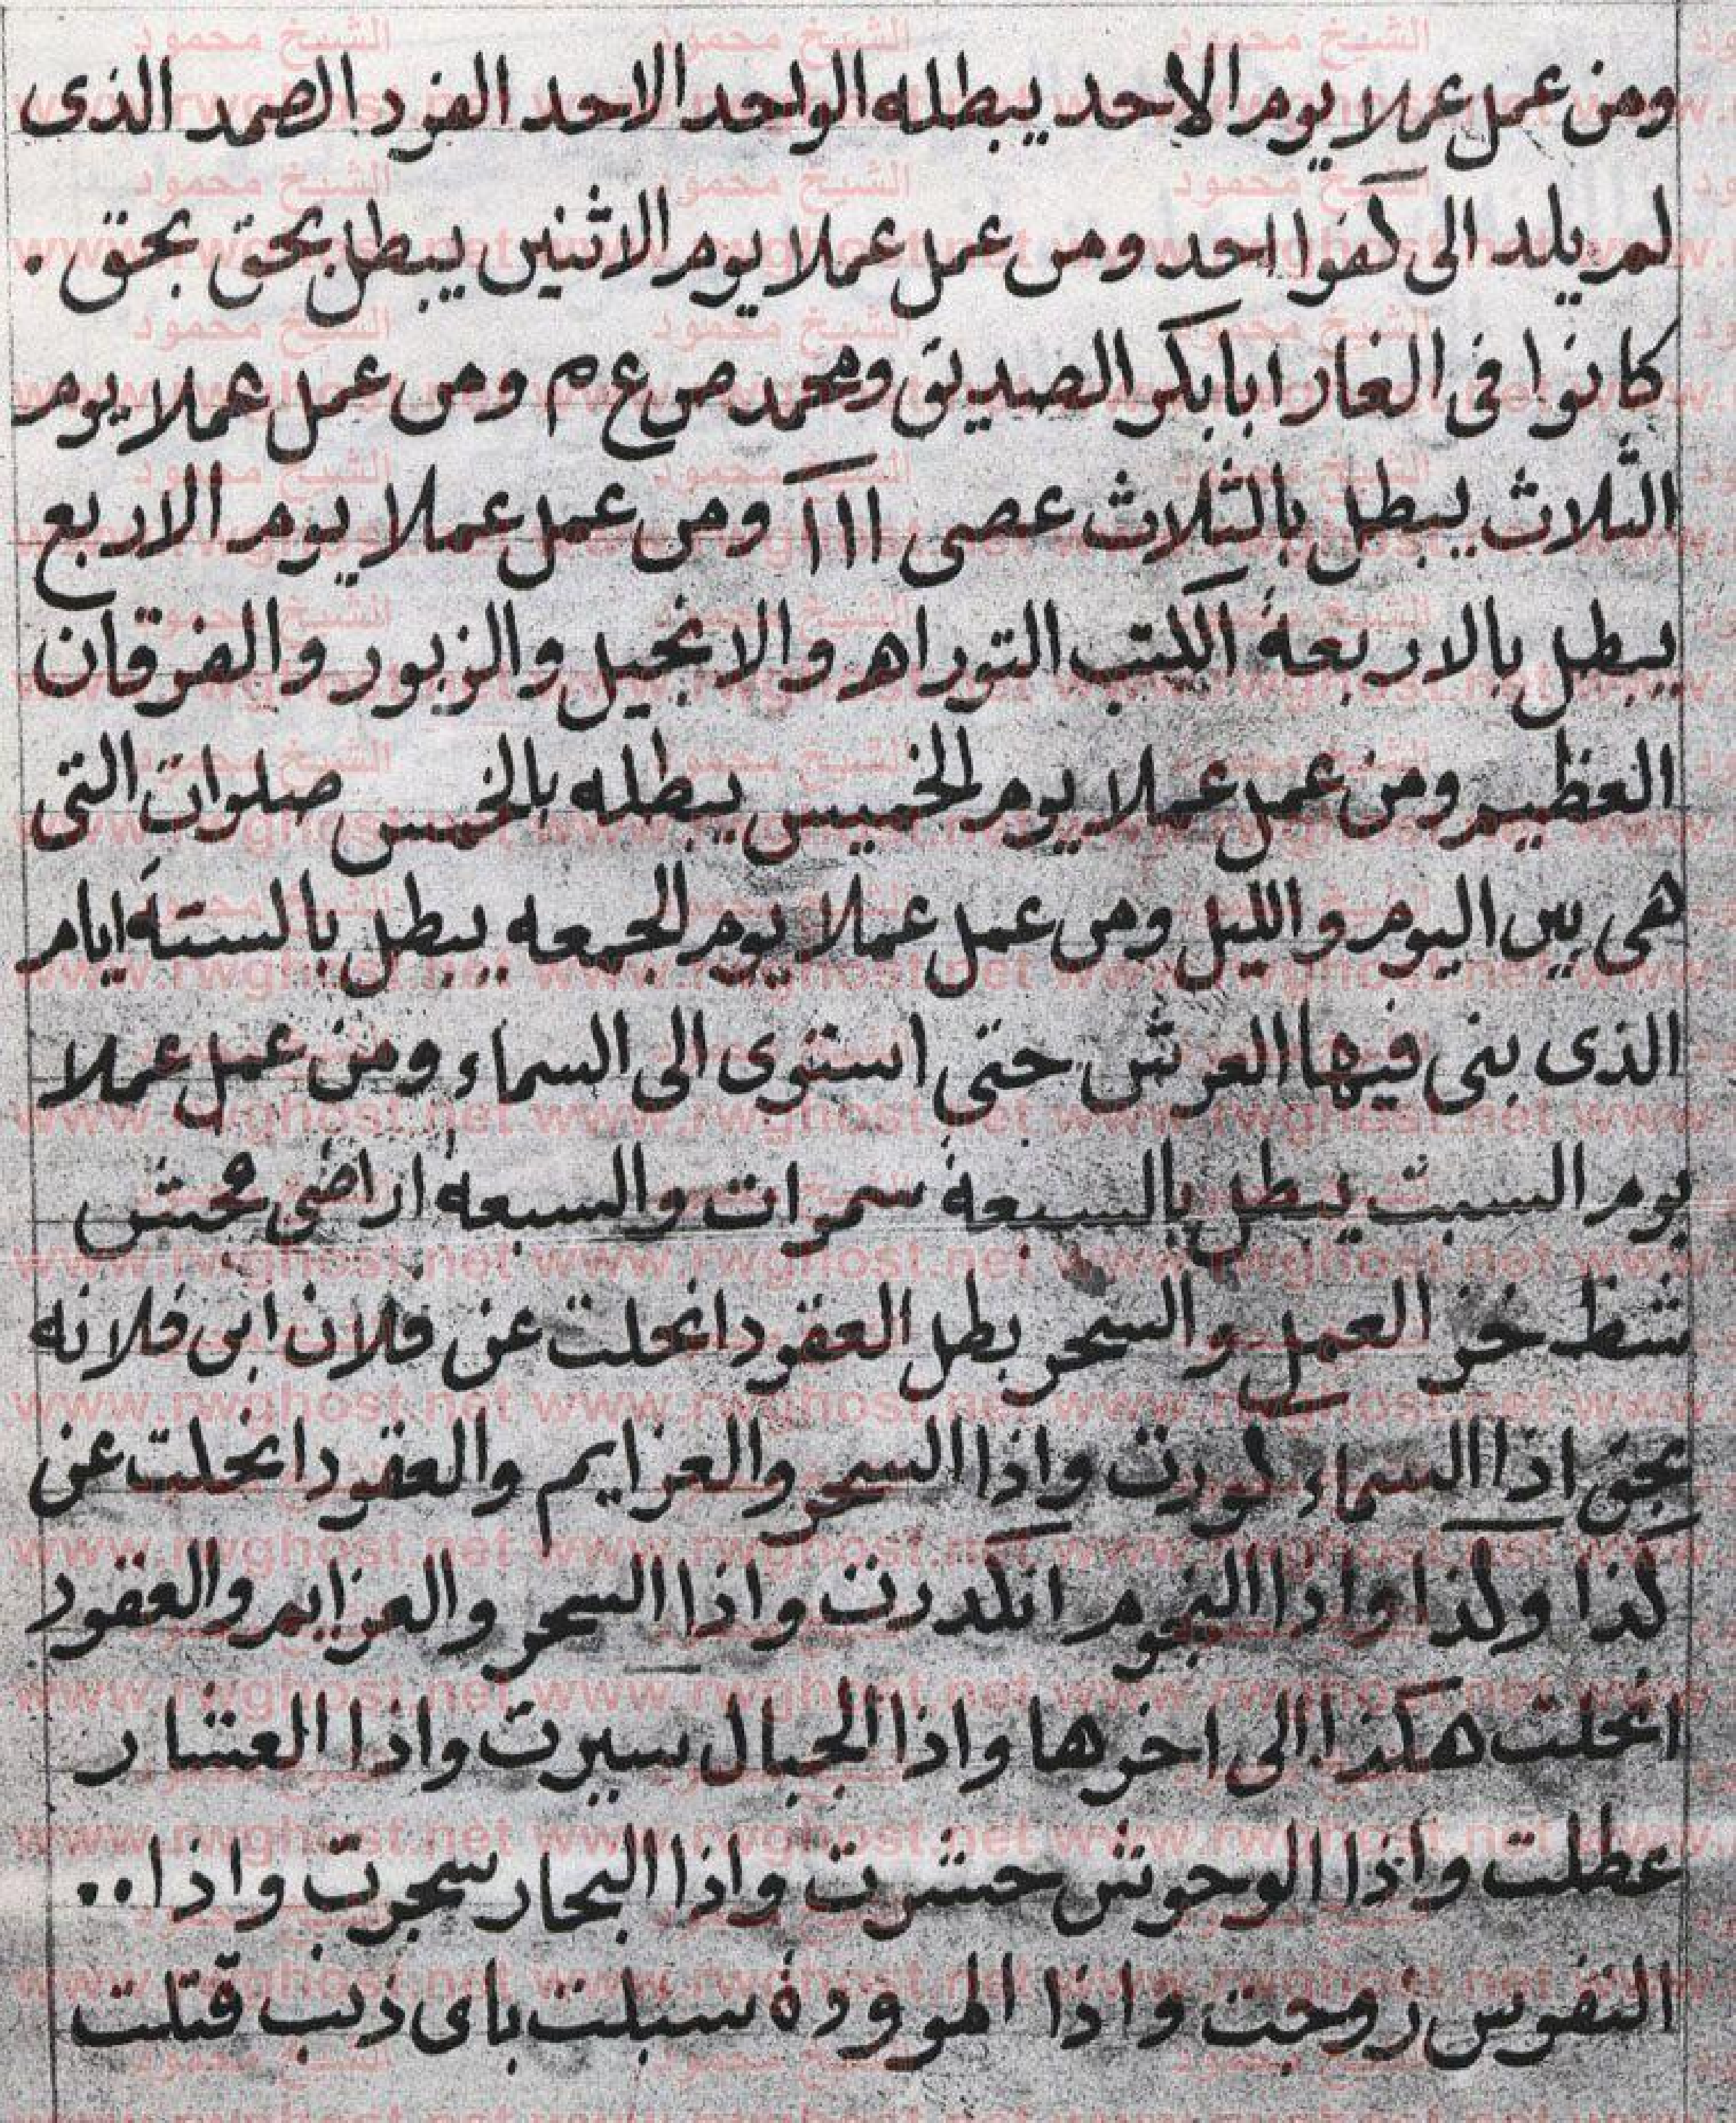 ومن عمل عملا يوم الاحد يبطله الواحد الاحد الفرد الصمد الذى
لم يلد الى كفوا احد ومن عمل عملا يوم الاثنين يبطل بحق بحق .
كانوا فى الغار ابابكر الصديق ومحمد ص ع م ومن عمل عملا يوم
الثلاث يبطل بالثلاث عصى ااا ومن عمل عملا يوم الاربع
يبطل بالاربعة الكتب التوراه والانجيل والزبور والفرقان
العظيم ومن عمل عملا يوم الخميس يبطله بالخمس صلوات التى
هى بين اليوم والليل ومن عمل عملا يوم الجمعه يبطل بالستة ايام
الذى بنى فيها العرش حتى استوى الى السماء ومن عمل عملا
يوم السبت يبطل بالسبعة سموات والسبعه اراضى فجش
ثظخز العمل والسحر بطل العقود انحلت عن فلان ابن فلانه
بحق اذا السماء كورت واذا السحر والعزايم والعقود انحلت عن
كذا وكذا واذا النجوم انكدرت واذا السحر والعزايم والعقود
انحلت هكذا الى اخرها واذا الجبال سيرت واذا العشار
عطلت واذا الوحوش حشرت واذا البحار سجرت واذا ..
النفوس زوجت واذا الموودة سيلت باى ذنب قتلت
الشيخ محمود
www.rwghost.net